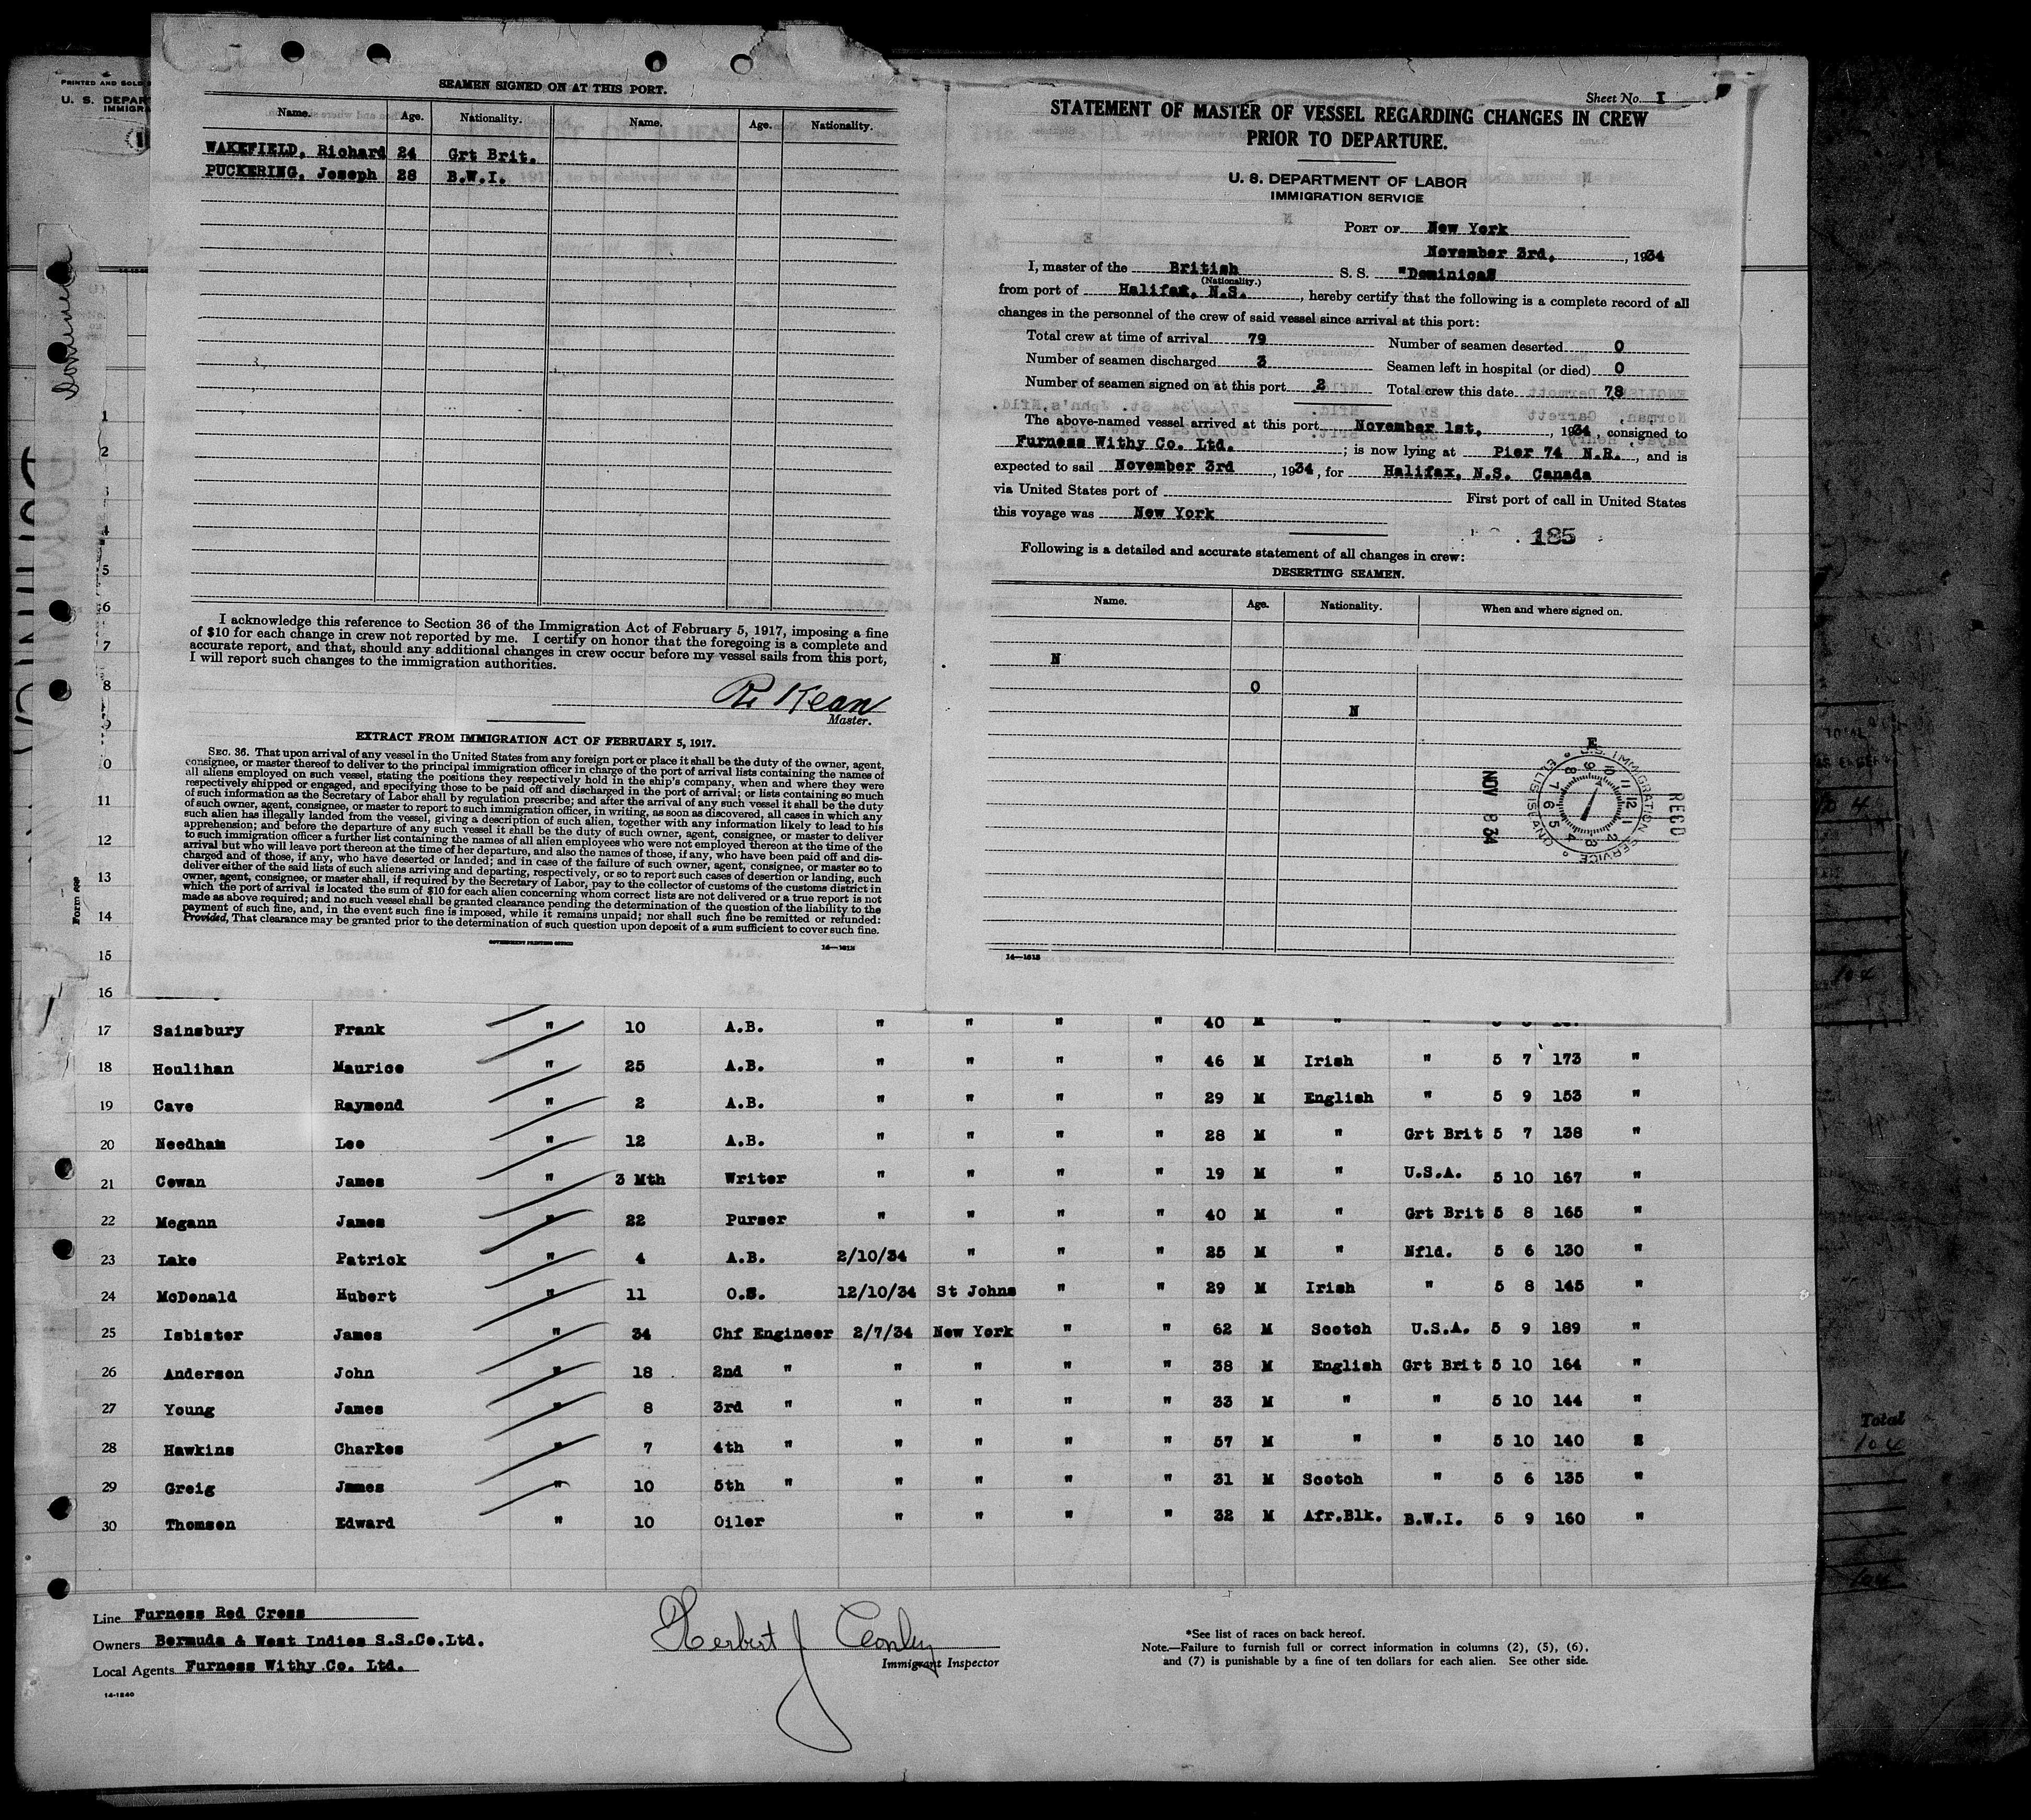 SEAMEN SIGNED ON AT THIS PORT.
Name. Age. Nationality. Name. Age. Nationality.
WAKEFIELD, Richard 24 Grt Brit.
PUCKERING, Joseph 28 B.W.I.
I acknowledge this reference to Section 36 of the Immigration Act of February 5, 1917, imposing a fine
of $10 for each change in crew not reported by me. I certify on honor that the foregoing is a complete and
accurate report, and that, should any additional changes in crew occur before my vessel sails from this port,
I will report such changes to the immigration authorities.
Kean
Master.
EXTRACT FROM IMMIGRATION ACT OF FEBRUARY 5, 1917.
SEC. 36. That upon arrival of any vessel in the United States from any foreign port or place it shall be the duty of the owner, agent,
consignee, or master thereof to deliver to the principal immigration officer in charge of the port of arrival lists containing the names of
all aliens employed on such vessel, stating the positions they respectively hold in the ship's company, when and where they were
respectively shipped or engaged, and specifying those to be paid off and discharged in the port of arrival; or lists containing so much
of such information as the Secretary of Labor shall by regulation prescribe; and after the arrival of any such vessel it shall be the duty
of such owner, agent, consignee, or master to report to such immigration officer, in writing, as soon as discovered, all cases in which any
such alien has illegally landed from the vessel, giving a description of such alien, together with any information likely to lead to his
apprehension; and before the departure of any such vessel it shall be the duty of such owner, agent, consignee, or master to deliver
to such immigration officer a further list containing the names of all alien employees who were not employed thereon at the time of the
arrival but who will leave port thereon at the time of her departure, and also the names of those, if any, who have been paid off and dis-
charged and of those, if any, who have deserted or landed; and in case of the failure of such owner, agent, consignee, or master so to
deliver either of the said lists of such aliens arriving and departing, respectively, or so to report such cases of desertion or landing, such
owner, agent, consignee, or master shall, if required by the Secretary of Labor, pay to the collector of customs of the customs district in
which the port of arrival is located the sum of $10 for each alien concerning whom correct lists are not delivered or a true report is not
made as above required; and no such vessel shall be granted clearance pending the determination of the question of the liability to the
payment of such fine, and, in the event such fine is imposed, while it remains unpaid; nor shall such fine be remitted or refunded:
Provided, That clearance may be granted prior to the determination of such question upon deposit of a sum sufficient to cover such fine.
GOVERNMENT PRINTING OFFICE 14—1613
Sheet No. I
STATEMENT OF MASTER OF VESSEL REGARDING CHANGES IN CREW
PRIOR TO DEPARTURE.
U. S. DEPARTMENT OF LABOR
IMMIGRATION SERVICE
PORT OF New York
November 3rd, , 1934
I, master of the British S. S. "Dominica"
(Nationality.)
from port of Halifax, N.S. , hereby certify that the following is a complete record of all
changes in the personnel of the crew of said vessel since arrival at this port:
Total crew at time of arrival 79 Number of seamen deserted 0
Number of seamen discharged 3 Seamen left in hospital (or died) 0
Number of seamen signed on at this port 2 Total crew this date 78
The above-named vessel arrived at this port November 1st, , 1934, consigned to
Furness Withy Co. Ltd. ; is now lying at Pier 74 N.R. , and is
expected to sail November 3rd , 1934, for Halifax, N.S. Canada
via United States port of First port of call in United States
this voyage was New York
185
Following is a detailed and accurate statement of all changes in crew:
DESERTING SEAMEN.
Name. Age. Nationality. When and where signed on.
N
O
N
E
NOV 8 34
U.S. IMMIGRATION SERVICE ELLIS ISLAND
14—1613
PRINTED AND SOLD
U. S. DEPAR
IMMIGRA
Dominica
1
2
3
4
5
6
7
8
9
0
11
12
13
14
15
16
17 Sainsbury Frank " 10 A.B. " " " " 40 M " "
18 Houlihan Maurice " 25 A.B. " " " " 46 M Irish " 5 7 173 "
19 Cave Raymond " 2 A.B. " " " " 29 M English " 5 9 153 "
20 Needham Leo " 12 A.B. " " " " 28 M " Grt Brit 5 7 138 "
21 Cowan James " 3 Mth Writer " " " " 19 M " U.S.A. 5 10 167 "
22 Megann James " 22 Purser " " " " 40 M " Grt Brit 5 8 165 "
23 Lake Patrick " 4 A.B. 2/10/34 " " " 25 M " Nfld. 5 6 130 "
24 McDonald Hubert " 11 O.S. 12/10/34 St Johns " " 29 M Irish " 5 8 145 "
25 Isbister James " 34 Chf Engineer 2/7/34 New York " " 62 M Scotch U.S.A. 5 9 189 "
26 Anderson John " 18 2nd " " " " " 38 M English Grt Brit 5 10 164 "
27 Young James " 8 3rd " " " " " 33 M " " 5 10 144 "
28 Hawkins Charkes " 7 4th " " " " " 57 M " " 5 10 140
29 Greig James " 10 5th " " " " " 31 M Scotch " 5 6 135 "
30 Thomsen Edward " 10 Oiler " " " " 32 M Afr.Blk. B.W.I. 5 9 160 "
Line Furness Red Cross
Owners Bermuda & West Indies S.S.Co.Ltd.
Local Agents Furness Withy Co. Ltd.
14-1240
Herbert J Conley
Immigrant Inspector
*See list of races on back hereof.
Note.—Failure to furnish full or correct information in columns (2), (5), (6),
and (7) is punishable by a fine of ten dollars for each alien. See other side.
TOTAL
104
Total
104
104